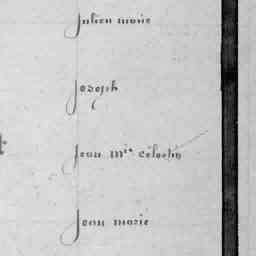 Julien marie
Joseph
Jean M.ie Célestin
Jean marie